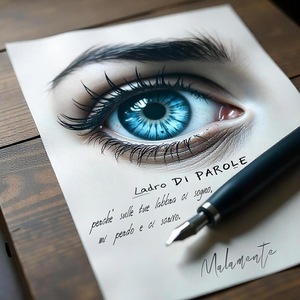 Ladro DI PAROLE
perché sulle tue labbra ci sogno,
mi perdo e ci scrivo.
Malamente